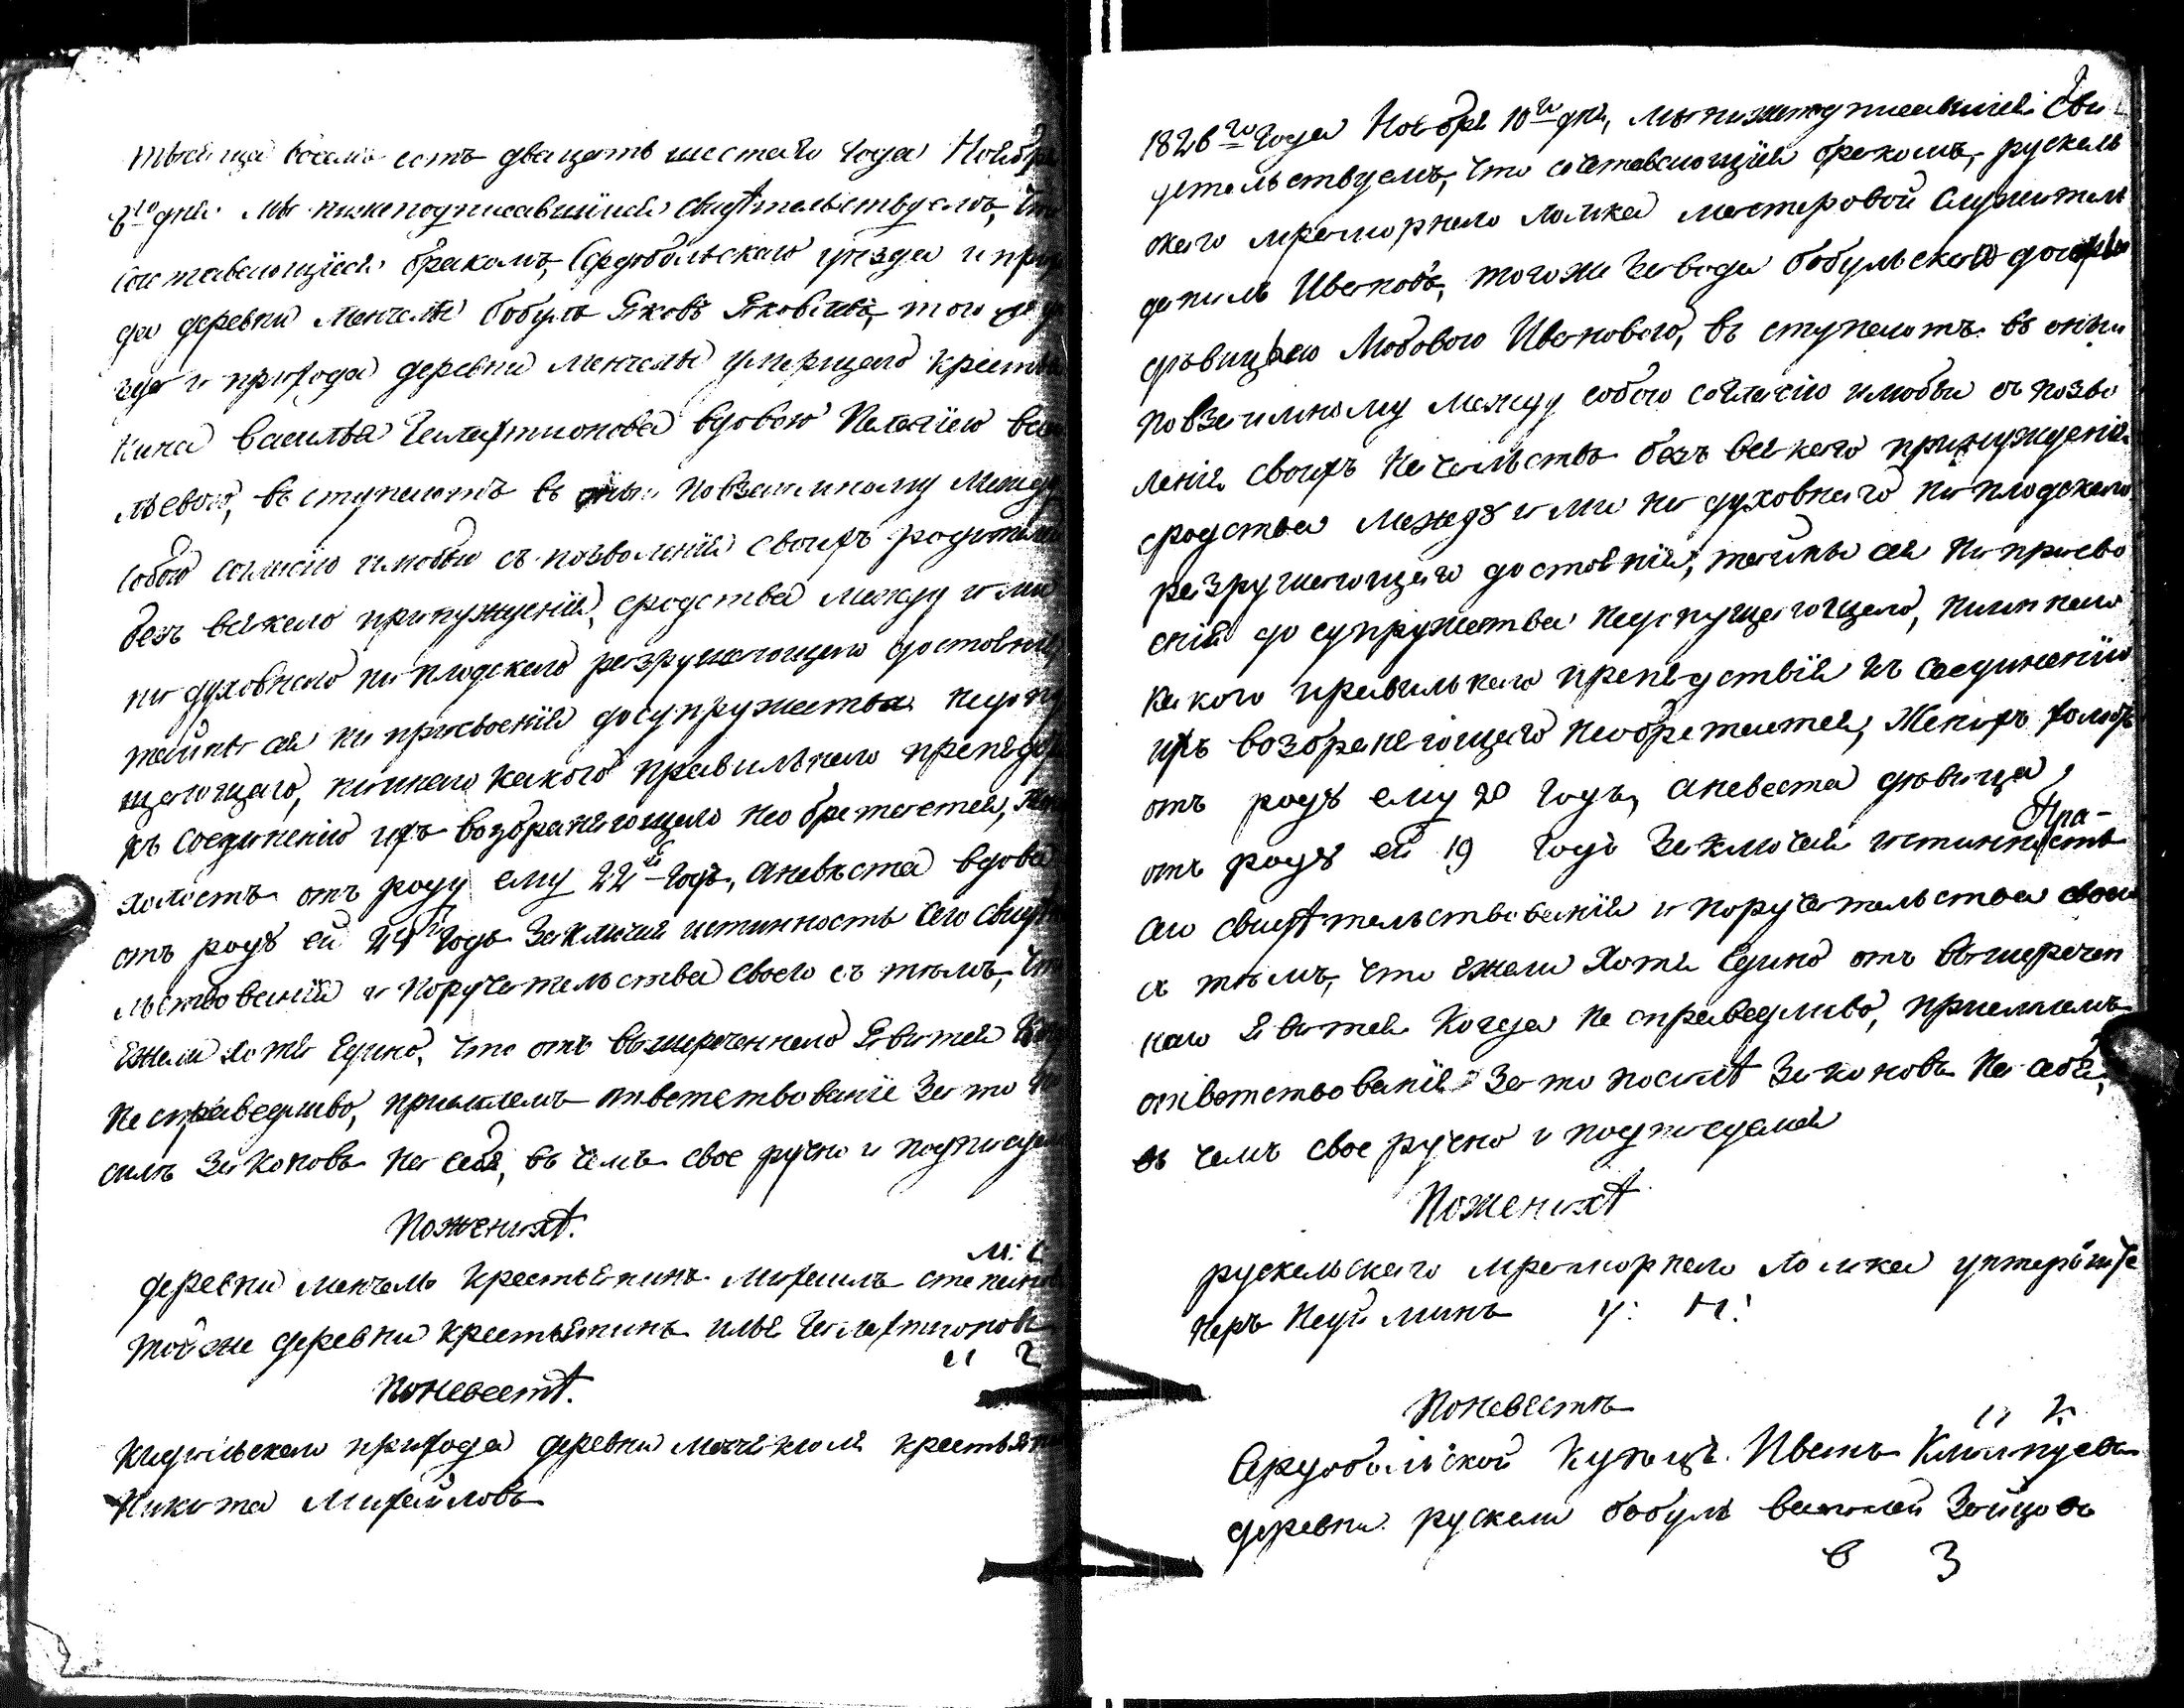 тысяща восемь сотъ двацать шестаго года Ноября
6го дня мы нижеподписавшийся свидѣтельствуемъ, что
сочтавающіеся бракомъ, Сердобольскаго уѣзда и прихо
да деревни Менчелы бобуль Яковъ Яковлевъ, того же уѣ
зда и прихода деревни Менчелы умершаго крестья
нина Василья Галактионова вдовою Пелагіею Васи
льевою, въ ступаютъ въ оный повзаимному между
собою согласию илюбви съ позволенія своихъ родителей
безъ всякаго принужденія, сродства между ими
ни духовнаго ни плодскаго разрушающаго достояния
тайны сея ни присвоенія досупружества недопу
щающаго, ниинаго какого правильнаго препядс
къ соединению ихъ возбраняющаго необретается, Жени
холостъ отъ роду ему 22й годъ, аневѣста вдова
отъ роду ей 24й годъ Заключая истинность сего свидѣте
льствованія и поручительства своего съ тѣмъ, что
ежели хотя едино, что отъ вышереченнаго явится
несправедливо, приемлемъ ответствованіе за то по
силѣ законовъ на себя, въ чемъ свое ручно и подписуемся
Поженихѣ.
М: С
деревни Менчелы крестьянинъ Михаилъ Степановъ
той же деревни крестьянинъ Илья Галактионовъ
И Г
Поневестѣ.
Кидельскаго прихода деревни крестьянинъ
Никита Михайловъ
1826го года Ноября 10го дня, мы нижеподписавшийся сви
детельствуемъ, что сочетавающійся бракомъ, рускаль
скаго мраморнаго ломка мастеровой служитель
Даниилъ Ивановъ, тогоже завода бобульскою дочерью
дѣвицею Любовою Ивановою, въ ступаютъ въ оный
повзаимному между собою согласію илюбви съ позво
ленія своихъ начальствъ безъ всякаго принужденія
сродства между ими ни духовнаго ни плодскаго
разрушающаго достоянія, тайны сея ни присво
енія до супружества недопущающаго, ниинаго
какого правильнаго препядствія къ соединенію
ихъ возбраняющаго необретается, Женихъ холостъ
отъ роду ему 20 годъ, аневеста дѣвица,
отъ роду ей 19 годъ Заключая истинность
сего свидѣтельствованія и поручительства своего
съ тѣмъ, что ежели хотя едино отъ вышеречен
наго явится когда не справедливо, приемлемъ
ответствованіе за то посилѣ законовъ на себя,
въ чемъ свое ручно и подписуемся
Поженихѣ
рускальскаго мраморнаго ломка
Неуйминъ У: Н:
Поневестѣ
И К
Сердобольской купецъ Иванъ
деревни рускали бобуль Василей Зайцовъ
В З